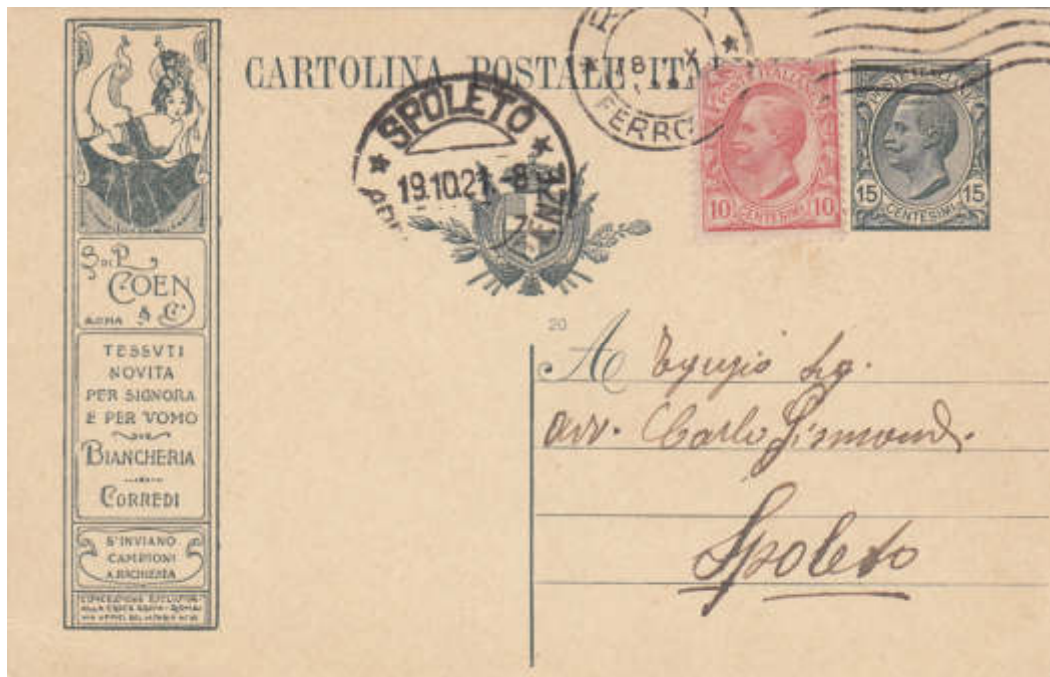 CARTOLINA POSTALE ITA
SPOLETO
19.10.21.-8
18 X
FERRO
POSTE ITALIANE
10 CENTESIMI 10
15 CENTESIMI 15
S. DI P.
COEN
& C.
ROMA
TESSVTI
NOVITA
PER SIGNORA
E PER VOMO
BIANCHERIA
CORREDI
S'INVIANO
CAMPIONI
A RICHIESTA
20
A Egregio Sig.
avv. Carlo
Spoleto